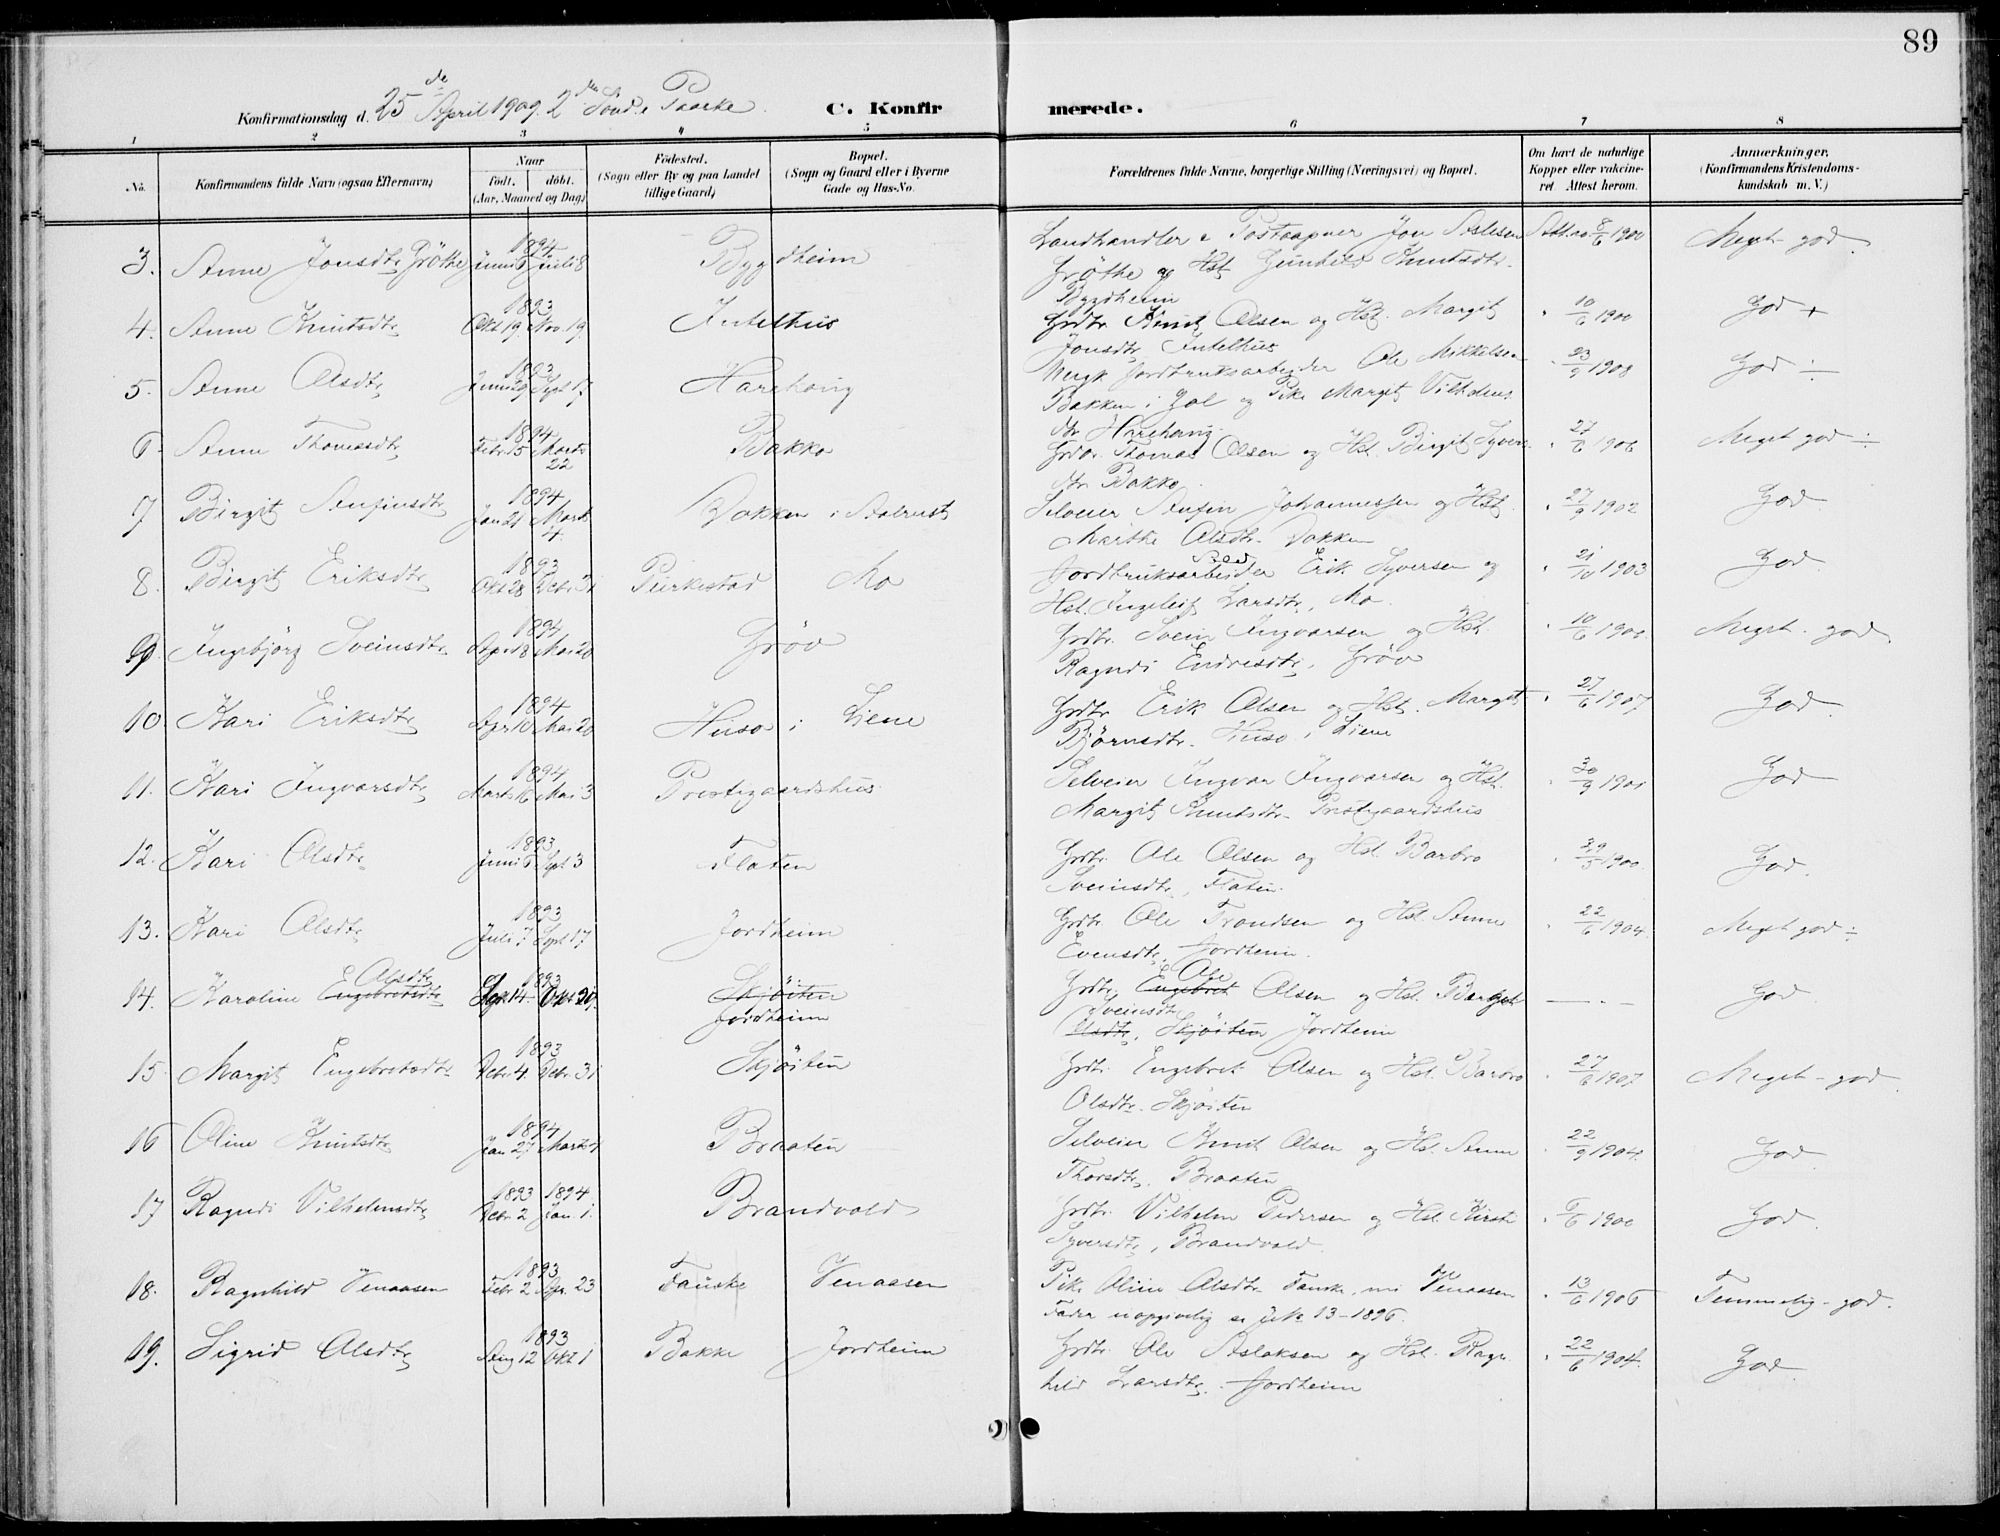 89
Konfirmationsdag d. 25de April 1909. 2den Sønd. e Paaske
C. Konfirmerede.
1 2 3 4 5 6 7 8
No. Konfirmandens fulde Navn (ogsaa Efternavn) Naar födt. döbt. (Aar, Maaned og Dag) Födested. (Sogn eller By og paa Landet tillige Gaard) Bopæl. (Sogn og Gaard eller i Byerne Gade og Hus-No. Forældrenes fulde Navne, borgerlige Stilling (Næringsvei) og Bopæl. Om havt de naturlige Kopper eller vakcineret Attest herom. Anmærkninger. (Konfirmandens Kristendomskundskab m. V.)
3. Anne Jonsdtr Grøthe 1894 Juni 6 Juli 8 Bygdheim Landhandler & Postaapner Jon Aslesen Att. no 8/6 1900 Meget god
Grøthe og Hst Gunhild Knutsdtr.
Bygdheim
4. Anne Knutsdtr 1893 Okt 19. Nov. 19. Intelhus Grdbr Knut Olsen og Hst. Margit " 10/6 1900 God +
Jonsdtr Intelhus
5. Anne Olsdtr 1893 Juni 29 Sept 17 Harehaug Ungk Jordbruksarbeider Ole Mikkelsen " 23/9 1908 God ÷
Bakken i Gol og Pike Margit Vilhelms
dtr Harehaug.
6. Anne Thomasdtr 1894 Febr. 15 Marts 22 Bakko Grdbr. Thomas Olsen og Hst. Birgit Syvers " 27/6 1906 Meget god ÷
dtr Bakko
7 Birgit Arnfinsdtr 1894 Jan 21 Marts 4. Bakken i Aalrust Selveier Arnfin Johannessen og Hst. " 27/9 1902 God
Marthe Olsdtr. Bakken
8. Birgit Eriksdtr 1893 Okt 28 Decbr. 31 Purkestad Mo Jordbruksarbeider Erik Syversen og " 21/10 1903 God
Hst. Ingeleif Larsdtr, Mo.
9. Ingebjørg Sveinsdtr 1894 April 8 Mai 20 Grøv Grdbr. Svein Ingvarsen og Hst. " 10/6 190 Meget god
Ragndi Endresdtr, Grøv
10 Kari Eriksdtr 1894 Apr 10 Mai 20 Huso i Liene Grdbr Erik Olsen og Hst. Margit " 27/6 1907 God
Bjørnsdtr. Huso i Liene
11. Kari Ingvarsdtr 1894 Marts 16 Mai 3 Prestegaardshus Selveier Ingvar Ingvarsen og Hst. " 30/9 1901 God
Margit Knutsdtr. Prestegaardshus
12. Kari Olsdtr 1893 Juni 6 Sept 3 Flaten Grdbr. Ole Olsen og Hst. Barbro " 29/5 1900. God.
Sveinsdtr, Flaten.
13. Kari Olsdtr 1893 Juli 7 Sept 17 Jordheim Grdbr. Ole Trondsen og Hst. Anne " 22/6 1904. Meget god ÷
Evensdtr. Jordheim.
14. Karoline Engebretsdtr Olsdtr 1893 Sept 14. Okt. 29. Skjøiten Jordheim Grdbr. Engebret Ole Olsen og Hst. Birgit — " — God
Olsdtr. Sveinsdtr Skjøiten Jordheim
15. Margit Engebretsdtr 1893 Decbr. 4. Decbr. 31 Skjøiten Grdbr. Engebret Olsen og Hst. Barbro " 27/6 1907 Meget god
Olsdtr. Skjøiten
16 Oline Knutsdtr 1894 Jan 27 Marts 4 Braaten Selveier Knut Olsen og Hst. Anne " 22/9 1904. God
Thorsdtr, Braaten
17 Ragndi Vilhelmsdtr 1893 Decbr. 2 1894 Jan 1. Brandvold Grdbr. Vilhelm Pedersen og Hst. Kirsti " 6/6 1900 God.
Syversdtr, Brandvold
18. Ragnhild Venaasen 1893 Febr. 2 Apr. 23 Fauske Venaasen Pike Oline Olsdtr Fauske, nu Venaasen " 13/6 1906 Temmelig god.
Fader uopgivelig se 13-1896.
19. Sigrid Olsdtr 1893 Aug 12 Okt 1 Bakke Jordheim Grdbr. Ole Aslaksen og Hst. Ragn " 22/6 1904. God
hild Larsdtr. Jordheim